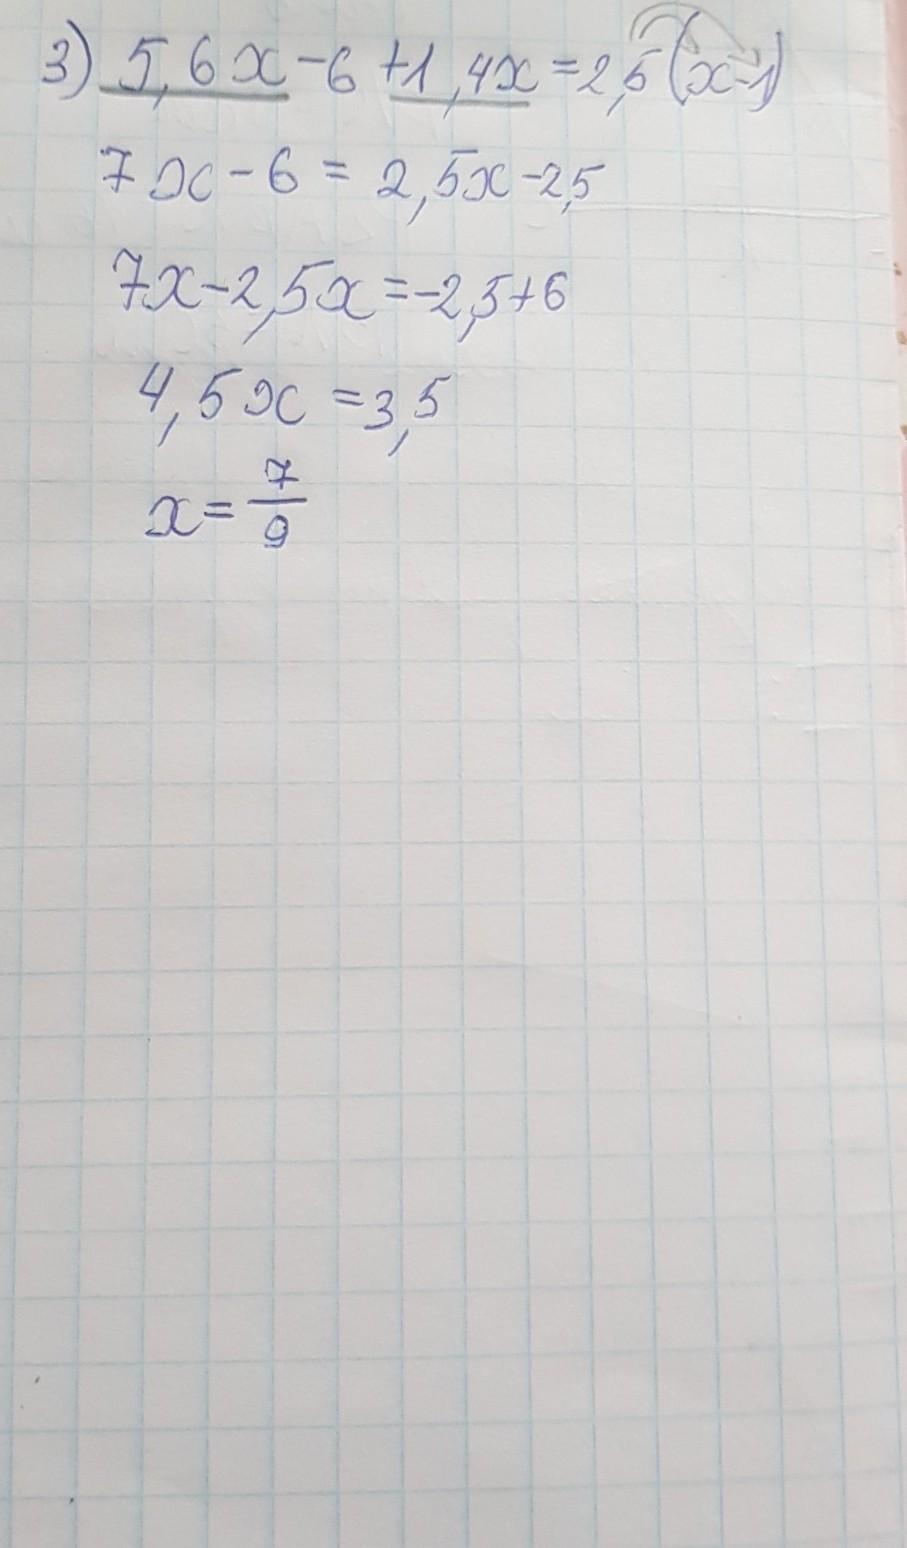 3) 5,6x-6+1,4x=2,5(x-1)
7x-6=2,5x-2,5
7x-2,5x=-2,5+6
4,5x=3,5
x=7/9